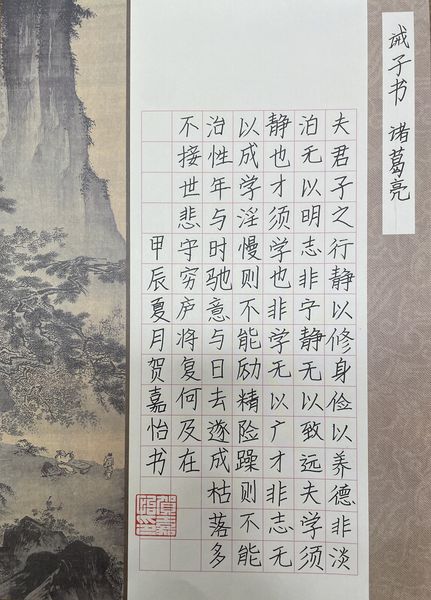 诫子书 诸葛亮
夫君子之行静以修身俭以养德非淡
泊无以明志非宁静无以致远夫学须
静也才须学也非学无以广才非志无
以成学淫慢则不能励精险躁则不能
治性年与时驰意与日去遂成枯落多
不接世悲守穷庐将复何及在
甲辰夏月贺嘉怡书